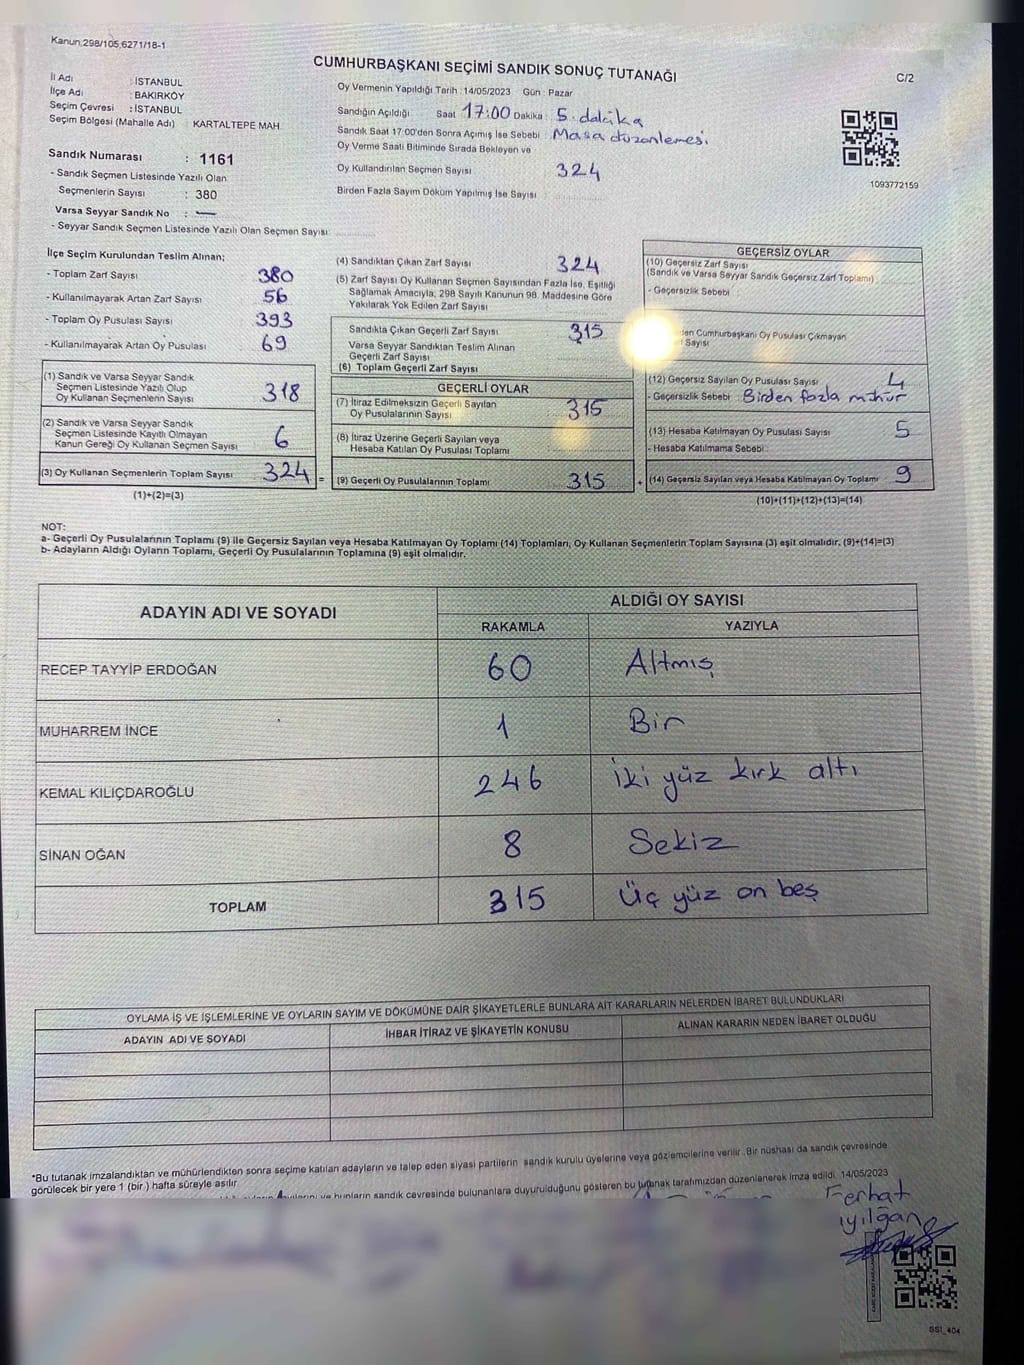 Kanun:298/105,6271/18-1
CUMHURBAŞKANI SEÇİMİ SANDIK SONUÇ TUTANAĞI
C/2
İl Adı : İSTANBUL
İlçe Adı : BAKIRKÖY
Seçim Çevresi : İSTANBUL
Seçim Bölgesi (Mahalle Adı) : KARTALTEPE MAH
Sandık Numarası : 1161
- Sandık Seçmen Listesinde Yazılı Olan
Seçmenlerin Sayısı : 380
Varsa Seyyar Sandık No : —
- Seyyar Sandık Seçmen Listesinde Yazılı Olan Seçmen Sayısı:
Oy Vermenin Yapıldığı Tarih :14/05/2023 Gün : Pazar
Sandığın Açıldığı Saat 17:00 Dakika : 5. dakika
Sandık Saat 17:00'den Sonra Açımış İse Sebebi : Masa düzenlemesi
Oy Verme Saati Bitiminde Sırada Bekleyen ve
Oy Kullandırılan Seçmen Sayısı 324
Birden Fazla Sayım Döküm Yapılmış İse Sayısı
1093772159
İlçe Seçim Kurulundan Teslim Alınan;
- Toplam Zarf Sayısı 380
- Kullanılmayarak Artan Zarf Sayısı 56
- Toplam Oy Pusulası Sayısı 393
- Kullanılmayarak Artan Oy Pusulası 69
(1) Sandık ve Varsa Seyyar Sandık
Seçmen Listesinde Yazılı Olup
Oy Kullanan Seçmenlerin Sayısı 318
(2) Sandık ve Varsa Seyyar Sandık
Seçmen Listesinde Kayıtlı Olmayan
Kanun Gereği Oy Kullanan Seçmen Sayısı 6
(3) Oy Kullanan Seçmenlerin Toplam Sayısı 324 =
(1)+(2)=(3)
(4) Sandıktan Çıkan Zarf Sayısı 324
(5) Zarf Sayısı Oy Kullanan Seçmen Sayısından Fazla İse, Eşitliği
Sağlamak Amacıyla, 298 Sayılı Kanunun 98. Maddesine Göre
Yakılarak Yok Edilen Zarf Sayısı
Sandıkta Çıkan Geçerli Zarf Sayısı 315
Varsa Seyyar Sandıktan Teslim Alınan
Geçerli Zarf Sayısı
(6) Toplam Geçerli Zarf Sayısı
GEÇERLİ OYLAR
(7) İtiraz Edilmeksizin Geçerli Sayılan
Oy Pusulalarının Sayısı 315
(8) İtiraz Üzerine Geçerli Sayılan veya
Hesaba Katılan Oy Pusulası Toplamı
(9) Geçerli Oy Pusulalarının Toplamı 315 +
GEÇERSİZ OYLAR
(10) Geçersiz Zarf Sayısı
(Sandık ve Varsa Seyyar Sandık Geçersiz Zarf Toplamı)
- Geçersizlik Sebebi :
Cumhurbaşkanı Oy Pusulası Çıkmayan
Sayısı
(12) Geçersiz Sayılan Oy Pusulası Sayısı 4
- Geçersizlik Sebebi : Birden fazla mühür
(13) Hesaba Katılmayan Oy Pusulası Sayısı 5
- Hesaba Katılmama Sebebi :
(14) Geçersiz Sayılan veya Hesaba Katılmayan Oy Toplamı 9
(10)+(11)+(12)+(13)=(14)
NOT:
a- Geçerli Oy Pusulalarının Toplamı (9) ile Geçersiz Sayılan veya Hesaba Katılmayan Oy Toplamı (14) Toplamları, Oy Kullanan Seçmenlerin Toplam Sayısına (3) eşit olmalıdır. (9)+(14)=(3)
b- Adayların Aldığı Oyların Toplamı, Geçerli Oy Pusulalarının Toplamına (9) eşit olmalıdır.
ADAYIN ADI VE SOYADI
ALDIĞI OY SAYISI
RAKAMLA YAZIYLA
RECEP TAYYİP ERDOĞAN 60 Altmış
MUHARREM İNCE 1 Bir
KEMAL KILIÇDAROĞLU 246 İki yüz kırk altı
SİNAN OĞAN 8 Sekiz
TOPLAM 315 Üç yüz on beş
OYLAMA İŞ VE İŞLEMLERİNE VE OYLARIN SAYIM VE DÖKÜMÜNE DAİR ŞİKAYETLERLE BUNLARA AİT KARARLARIN NELERDEN İBARET BULUNDUKLARI
ADAYIN ADI VE SOYADI İHBAR İTİRAZ VE ŞİKAYETİN KONUSU ALINAN KARARIN NEDEN İBARET OLDUĞU
*Bu tutanak imzalandıktan ve mühürlendikten sonra seçime katılan adayların ve talep eden siyasi partilerin sandık kurulu üyelerine veya gözlemcilerine verilir. Bir nüshası da sandık çevresinde
görülecek bir yere 1 (bir) hafta süreyle asılır.
ve bunların sandık çevresinde bulunanlara duyurulduğunu gösteren bu tutanak tarafımızdan düzenlenerek imza edildi. 14/05/2023
Ferhat
iyilğan
SSI_404